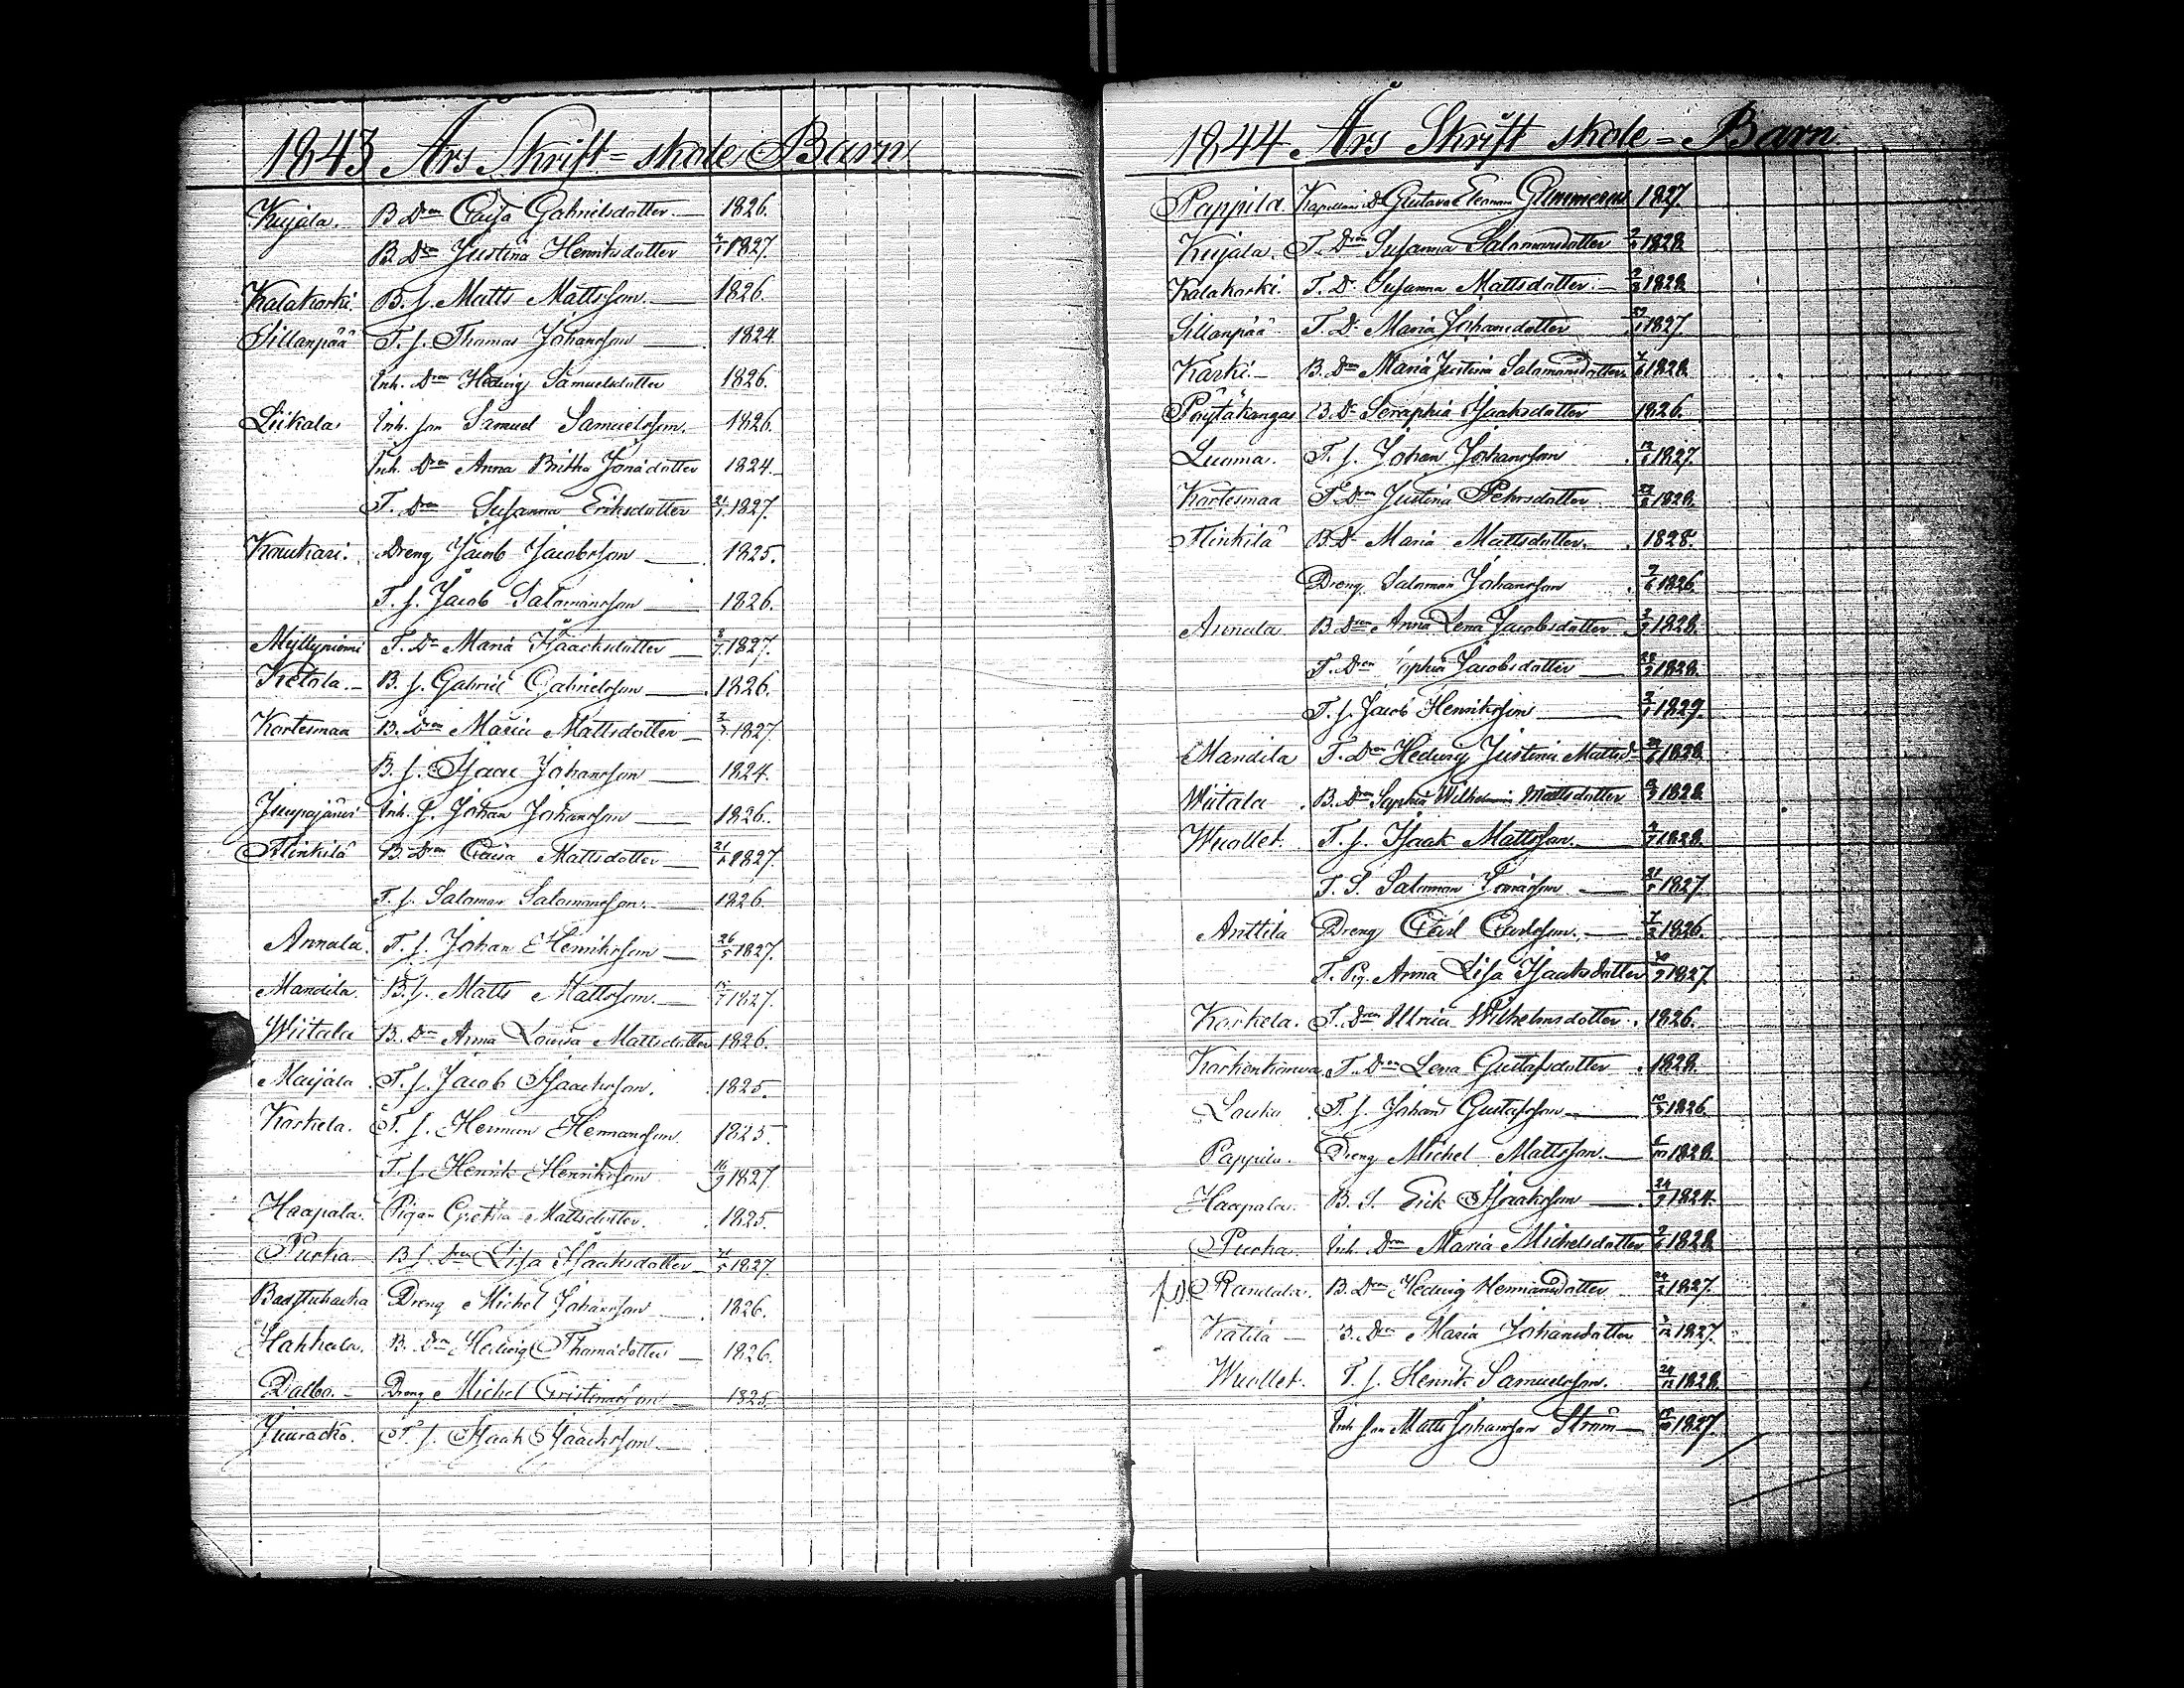 1843 Års Skrift=skole Barn
Kujala. B Dren Caisa Gabrielsdotter. — 1826.
B. Dren Justina Henriksdotter 1827.
Kalakoski. B. s. Matts Mattsson. — 1826.
Sillanpää T. s. Thomas Johansson — 1824.
Inh. Dren Hedvig Samuelsdotter 1826.
Liikala Inh. son Samuel Samuelsson. 1826.
Inh. Dren Anna Britha Jonädotter 1824.
T. Dren Susanna Eriksdotter 21/1 1827.
Koukari. Dreng Jacob Jacobsson — 1825.
T. s. Jacob Salomonsson — 1826.
Myllyniemi T. Dr Maria Isaacksdotter — 1827.
Ketola. — B. s. Gabriel Gabrielsson — 1826.
Kortesmaa B. Dren Maria Mattsdotter — 1827.
B. s. Isaac Johansson — 1824.
Juupajärvi Inh. s. Johan Johansson — 1826.
Flinkilä B. Dren Caisa Mattsdotter — 1827.
T. s. Salomon Salomonsson. — 1826.
Annala. T. s. Johan Henriksson — 26/5 1827.
Mandila. B. s. Matts Mattsson. — 1827.
Wiitala B. Dren Anna Lovisa Mattsdotter 1826.
Maijala. T. s. Jacob Isaacksson. 1825.
Koskela. T. s. Herman Hermansson. 1825.
T. s. Henrik Henriksson 16/9 1827
Haapala. Pigan Gretha Mattsdotter. 1825.
Purha. B. s. Dren Lisa Isaaksdotter — 1827.
Badstubacka Dreng Michel Johansson 1826.
Hahkala. B. Dren Hedvig Thomädotter — 1826.
Dalbo. — Dreng Michel Cristiansson — 1825.
Juuracko. T. s. Isaak Isaacksson. —
1844 Års Skrift skole = Barn.
Pappila. Kapellani Dr Gustava Eleonora Gummerus 1827
Kujala. T. Dren Susanna Salomonsdotter 1828
Kalakoski. T. Dr Susanna Mattsdotter. — 2/8 1828.
Sillanpää T. Dr Maria Johansdotter 1827.
Koski. — B. Dren Maria Justina Salomonsdotter. 1828.
Pöytäkangas B. Dr Seraphia Isaaksdotter 1826.
Luoma. T. s. Johan Johansson 1827.
Kortesmaa T. Dren Justina Pehrsdotter 1828.
Flinkilä B. Dr Maria Mattsdotter. 1828.
Dreng Salomon Johansson 7/6 1826.
Annala. B. Dren Anna Lena Jacobsdotter. 1828.
T. Dren Sophia Jacobsdotter — 1828.
T. s. Jacob Henriksson — 1829.
Mandila T. Dren Hedvig Justina Mattsd — 1828.
Wiitala B. Dren Sophia Wilhelmina Mattsdotter 1828.
Wuollet. T. s. Isaak Mattsson. — 1828.
T. S. Salomon Tomässon — 21/5 1827.
Anttila Dreng Carl Carlsson. — 1826.
T. Pig. Anna Lisa Isaaksdotter 1827
Koskela. T. Dren Ulrica Wilhelmsdotter. 1826.
Korkonkorva. T. Dren Lena Gustafsdotter 1828.
Laska T. s. Johan Gustafsson — 10/5 1826.
Pappila. Dreng Michel Mattsson. — 1828.
Haapala B. S. Erik Isaaksson — 24/9 1824.
Purha Inh. Dren Maria Michelsdotter 1828
Randala. B. Dren Hedvig Hermansdotter 1827.
Katila — B. Dren Maria Johansdotter 1827.
Wuollet. T. s. Henrik Samuelsson. 24/12 1828.
Inh son Matts Johansson Ström — 1827.